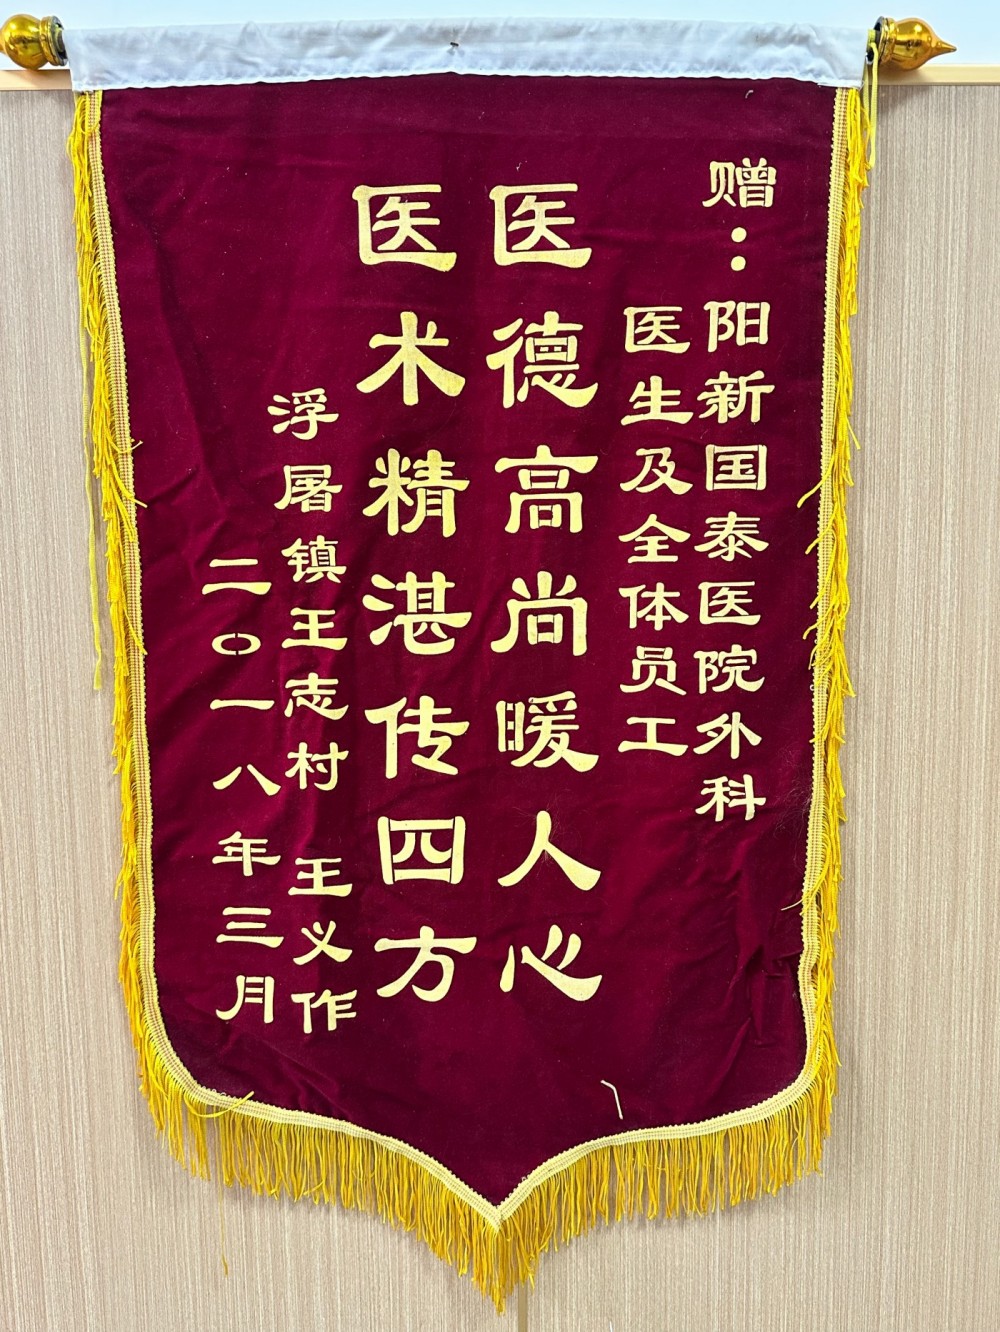 赠：阳新国泰医院外科
医生及全体员工
医德高尚暖人心
医术精湛传四方
浮屠镇王志村 王义作
二〇一八年三月